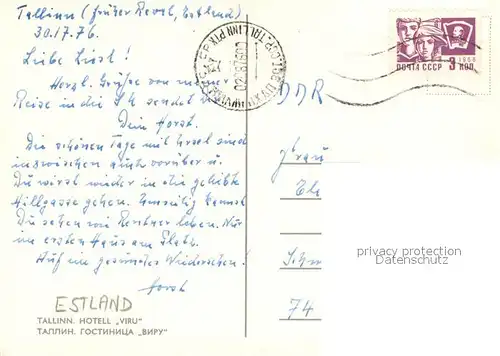 Tallinn (früher Reval, Estland)
30.17.76.
Liebe Liesl!
Herzl. Grüße von meiner
Reise in die sendet
Dein Horst.
Die schönen Tage mit sind
inzwischen auch vorüber u.
Du wirst wieder in die geliebte
Hillgasse gehen. kannst
Du sehen wie Rentner leben. Nur
im ersten Haus am Platz.
Auf ein gesundes Wiedersehen!
Horst
ESTLAND
TALLINN. HOTELL „VIRU"
ТАЛЛИН. ГОСТИНИЦА „ВИРУ"
ПОЧТА СССР 3 КОП
1966
DDR
Frau
privacy protection
Datenschutz
74